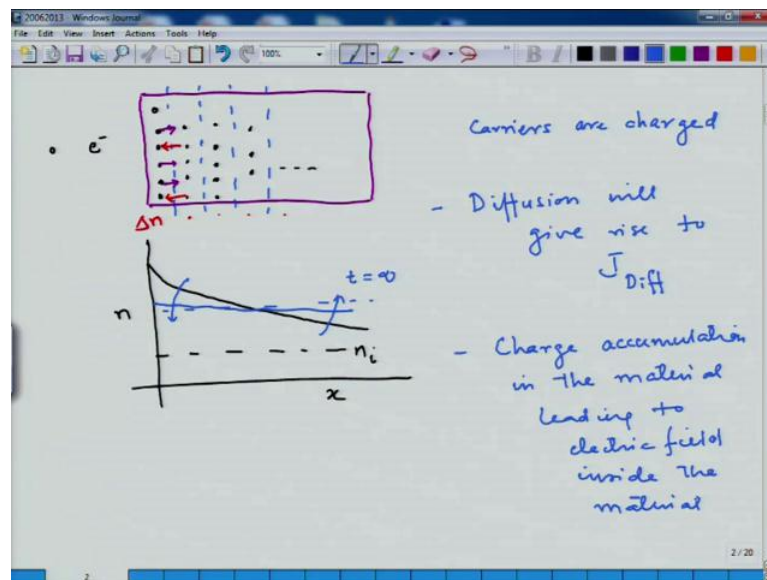 20062013 - Windows Journal
File Edit View Insert Actions Tools Help
100%
B I
e⁻
Δn
n
t = ∞
nᵢ
x
Carriers are charged
- Diffusion will
give rise to
J Diff
- Charge accumulation
in the material
leading to
electric field
inside the
material
2 / 20
2